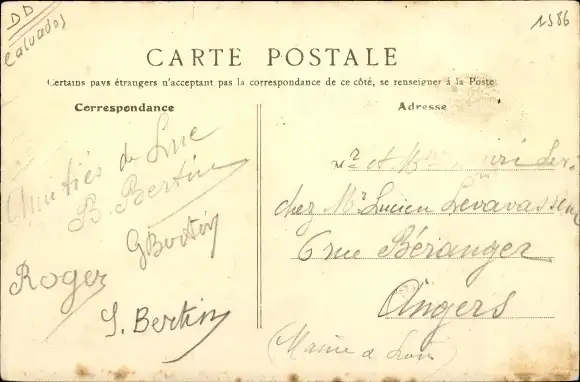 DD
Calvados
1586
CARTE POSTALE
Certains pays étrangers n'acceptant pas la correspondance de ce côté, se renseigner à la Poste
Correspondance
Adresse
Amitiés de Luc
B. Bertin
G Bertin
Roger
S. Bertin
Mr et Mme
chez Mr Lucien Levavasseur
6 rue Béranger
Angers
(Maine & Loire)